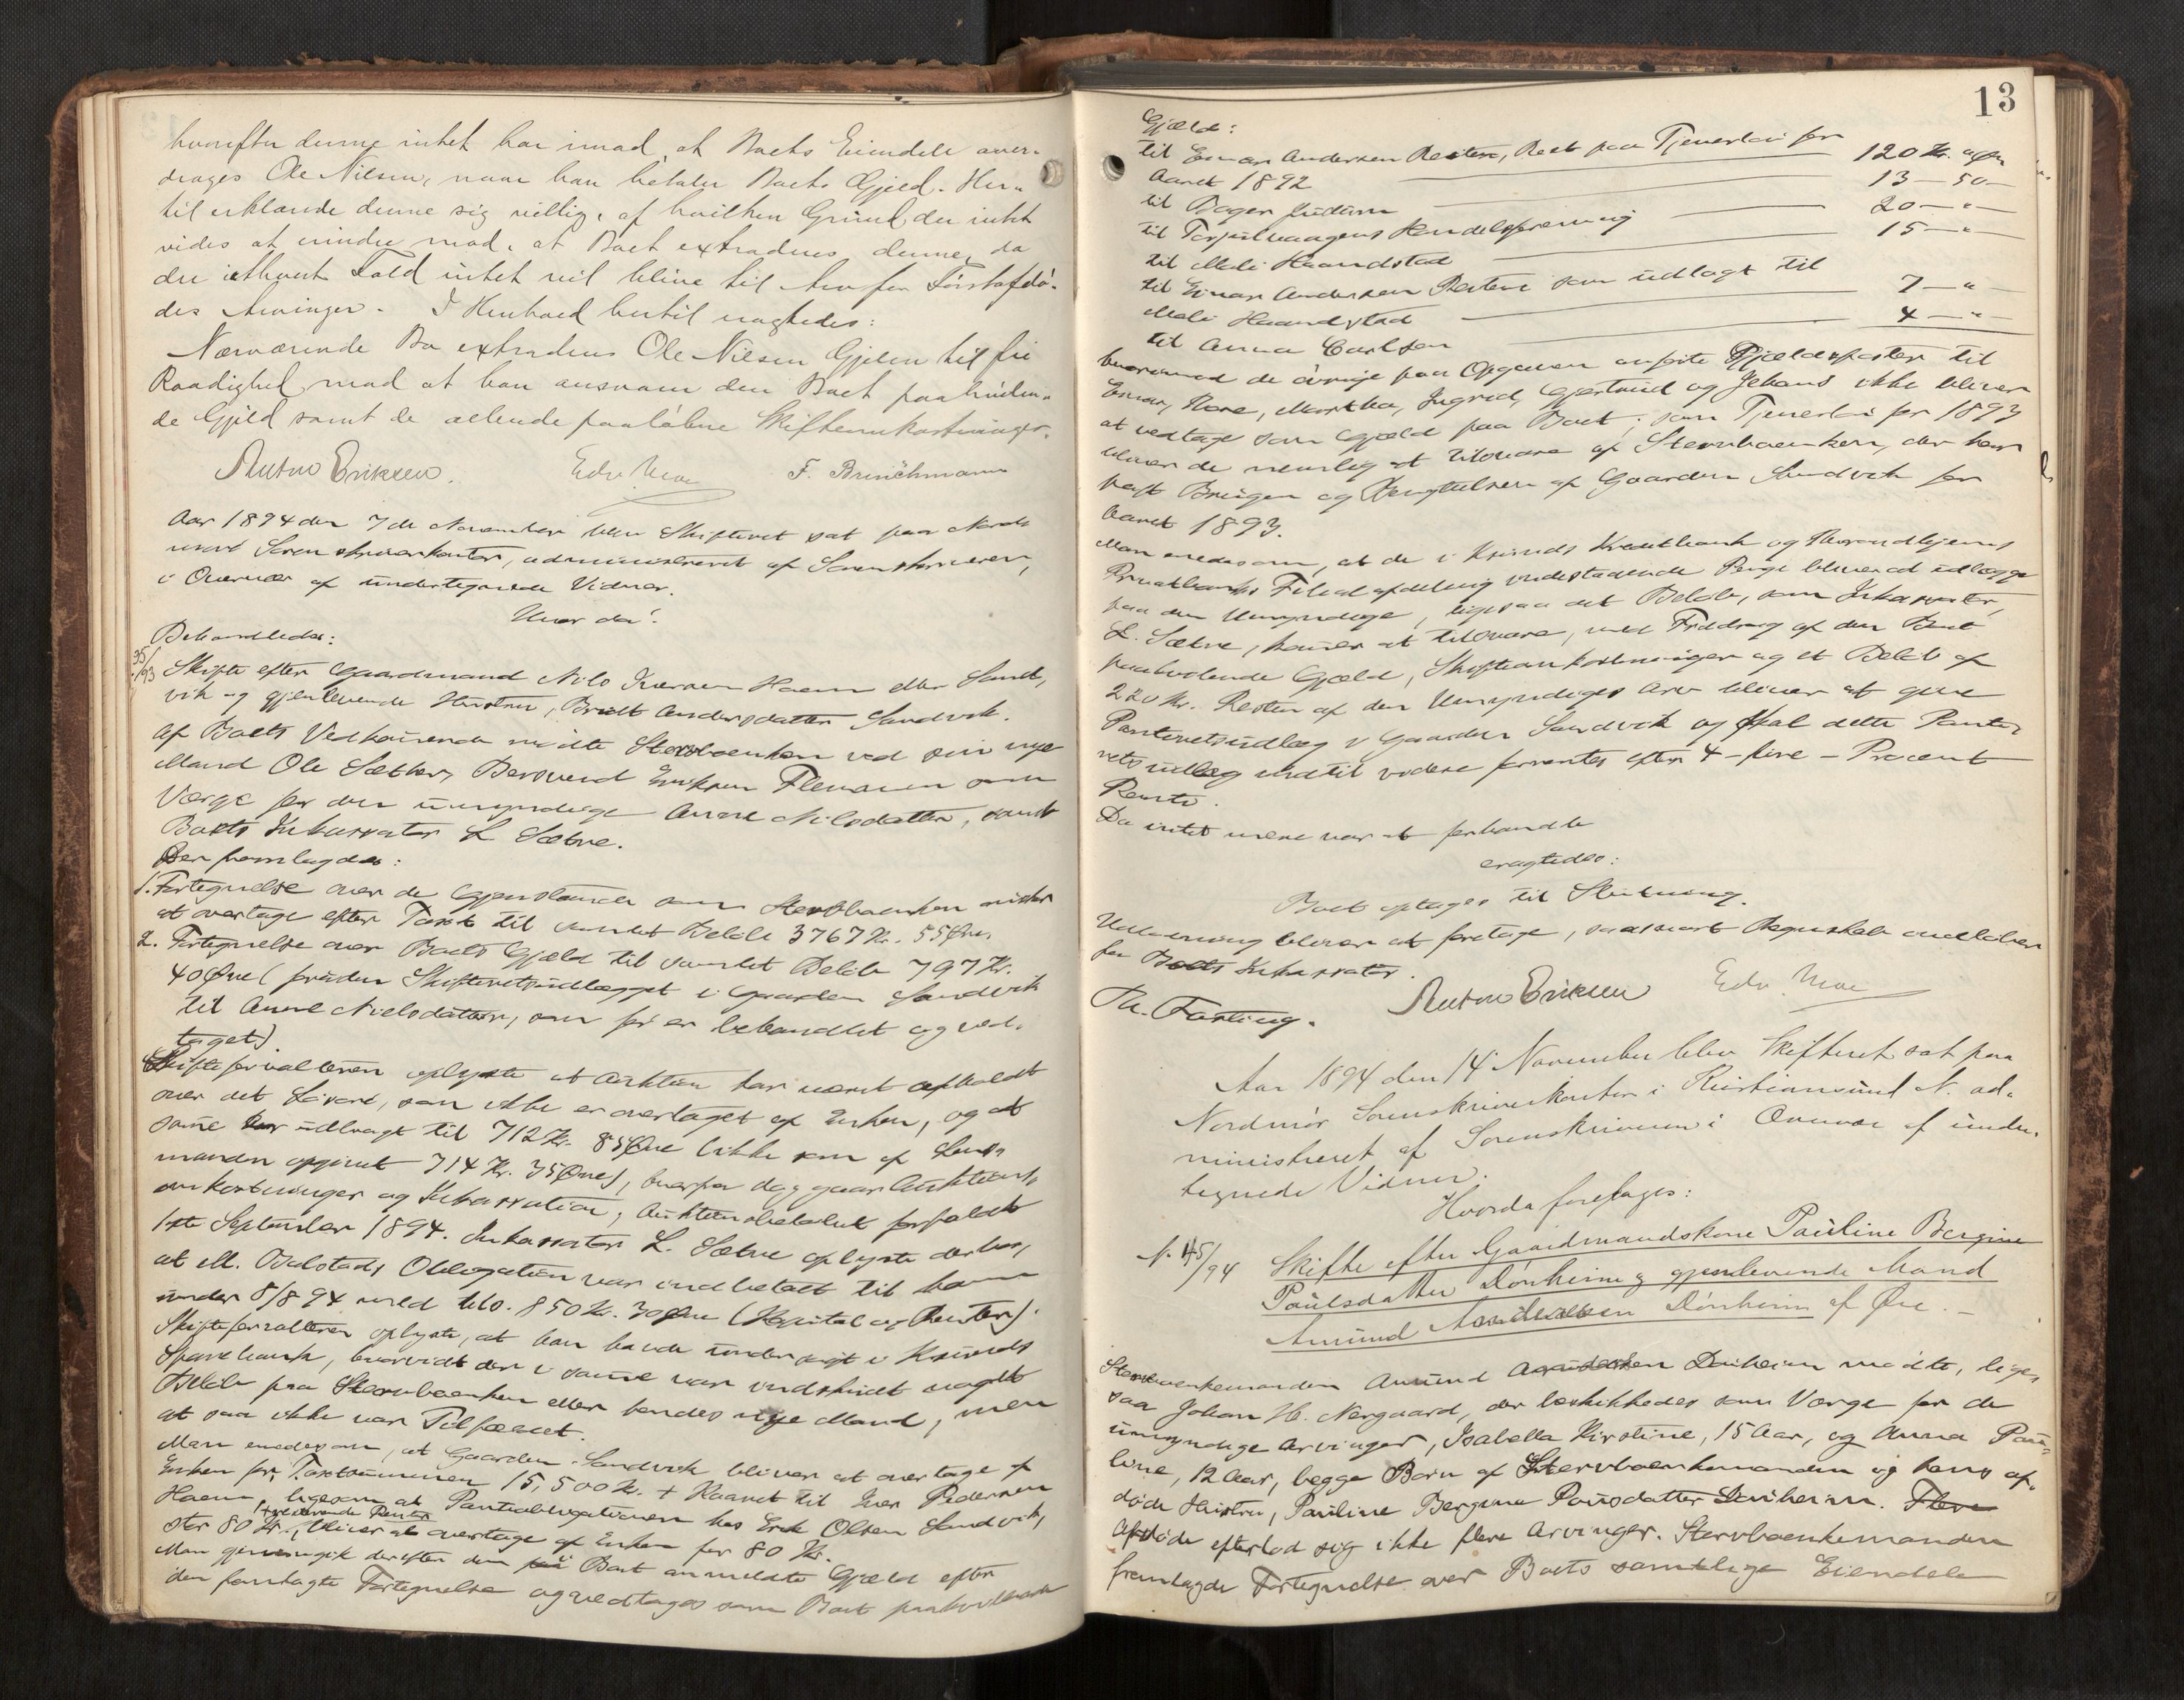 hvorefter denne intet har imod, at Boets Eiendele over-
drages Ole Nilsen, naar han betaler Boets Gjeld. Her-
til erklærede denne sig villig, af hvilken Grund der intet
vides at erindre mod, at Boet extraderes denne, da
der i ethvert Fald intet vil blive til Arv for Førstafdø-
des Arvinger. I Henhold hertil eragtedes:
Nærværende Bo extraderes Ole Nilsen Gjelen til fri
Raadighed mod at han ansvarer den Boet paahvilen-
de Gjeld samt de allerede paaløbne Skifteomkostninger.
Anton Eriksen. Edv. Moe F. Brinchmann
Aar 1894 den 7de November blev Skifteret sat paa Nord-
møre Sorenskriverkontor, administreret af Sorenskriveren,
i Overvær af undertegnede Vidner.
Hvor da:
Behandledes:
35/93 Skifte efter Gaardmand Nils Iversen Haem eller Sand-
vik og gjenlevende Hustru, Brit Andersdatter Sandvik.
Af Boets Vedkommende mødte Stervboenken ved sin nye
Mand Ole Sæther, Bersvend Eriksen Flemmen som
Værge for den umyndige Anne Nilsdatter, samt
Boets Inkassator L. Sætre.
Der fremlagdes:
1. Fortegnelse over de Gjenstande som Stervboenken ønsker
at overtage efter Taxt til samlet Beløb 3767 Kr. 55 Øre.
2. Fortegnelse over Boets Gjæld til samlet Beløb 797 Kr.
40 Øre (foruden Skifteretsudlægget i Gaarden Sandvik
til Anne Nielsdatter, som før er behandlet og ved-
taget)
Skifteforvalteren oplyste at Auktion har været afholdt
over det Løsøre, som ikke er overtaget af Enken, og at
samme har udbragt til 712 Kr. 85 Øre (ikke som af Lens-
manden opgivet 714 Kr. 35 Øre), hvorfra dog gaar Auktions-
omkostninger og Inkassation; Auktionsbeløbet forfaldt
1ste September 1894. Inkassator L. Sætre oplyste derhos,
at M. Bolstads Obligation var indbetalt til ham
under 8/8 94 med tils. 850 Kr. 30 Øre (Kapital og Renter).
Skifteforvalteren oplyste, at han havde undersøgt i Ksunds
Sparebank, hvorvidt der i samme var indskudt noget
Beløb paa Stervboenken eller hendes nye Mand, men
at saa ikke var Tilfældet.
Man enedes om, at Gaarden Sandvik bliver at overtage af
Enken for Taxtsummen 15,500 Kr. + Kaaret til Iver Pedersen
Haem, ligesom at Pantobligationen hos Erik Olsen Sandvik,
stor 80 Kr., + resterende Renter bliver at overtage af Enken for 80 Kr.
Man gjennemgik derefter den i Boet anmeldte Gjæld efter
den fremlagte Fortegnelse og vedtoges som Boet paahvilende
13
Gjæld:
til Einar Andersen Resten, Rest paa Tjenerløn for
Aaret 1892 120 Kr. " Øre
til Bager 13 — 50 —
til Handelsforening 20 — " —
til Mali Haandstad 15 — " —
til Einar Andersen Resten som udlagt til
Mali Haandstad 7 — " —
til Anna Carlsen 4 — " —
hvorimod de øvrige paa Opgaven anførte Gjældsposter til
Einar, Tore, Martha, Ingrid, Gjertrud og Johans ikke bliver
at vedtage som Gjæld paa Boet; som Tjenerløn for 1893
bliver de nemlig at tilsvare af Stervboenken, der har
havt Brugen og Benyttelsen af Gaarden Sandvik for
Aaret 1893.
Man enedes om, at de i Ksunds Kreditbank og Throndhjems
Privatbanks Filialafdeling indestaaende Penge bliver at udlægge
paa den Umyndige, ligesaa det Beløb, som Inkassator,
L. Sætre, haver at tilsvare, med Fradrag af den Boet
paahvilende Gjæld, Skifteomkostninger og et Beløb af
220 Kr. Resten af den Umyndiges Arv bliver at give
Panteretsudlæg i Gaarden Sandvik og skal dette Pante-
retsudlæg indtil videre forrentes efter 4 – fire – Procent
Rente.
Da intet mere var at forhandle
eragtedes:
Boet optages til Slutning.
Udlodning bliver at foretage, saasnart Regnskab indløber
fra Boets Inkassator.
Th. Farting. Anton Eriksen Edv. Moe
Aar 1894 den 14 November blev Skifteret sat paa
Nordmør Sorenskriverkontor i Kristiansund N. ad-
ministreret af Sorenskriveren i Overvær af under-
tegnede Vidner.
Hvorda foretages:
N. 45/94 Skifte efter Gaardmandskone Pauline Bergine
Paulsdatter Dønheim og gjenlevende Mand
Amund Dønheim af Øre. –
Stervboenkemanden Amund Dønheim mødte, lige-
saa Johan H. Nergaard, der beskikkedes som Værge for de
umyndige Arvinger, Isabella Kirstine, 15 Aar, og Anna Pau-
line, 12 Aar, begge Børn af Stervboenkemanden og hans af-
døde Hustru, Pauline Bergine Poulsdatter Dønheim. Flere
Afdøde efterlod sig ikke flere Arvinger. Stervboenkemanden
fremlagde Fortegnelse over Boets samtlige Eiendele